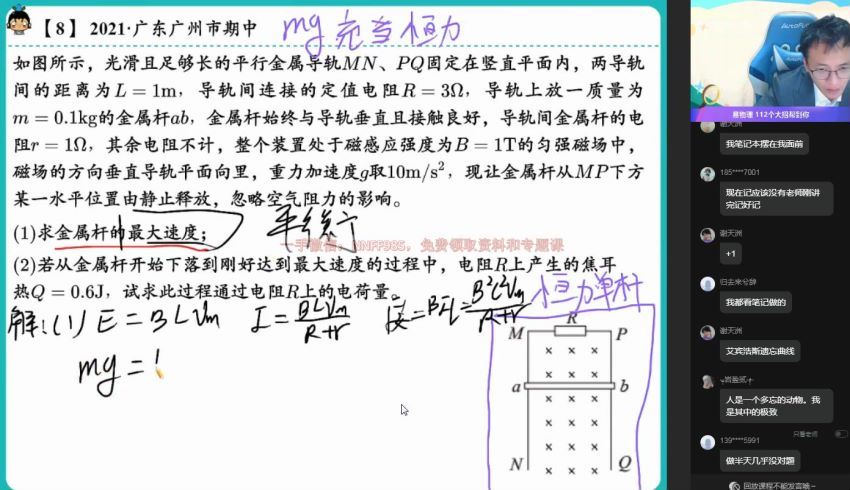 【8】 2021·广东广州市期中
mg 充当恒力
如图所示，光滑且足够长的平行金属导轨MN、PQ固定在竖直平面内，两导轨
间的距离为L＝1m，导轨间连接的定值电阻R＝3Ω，导轨上放一质量为
m＝0.1kg的金属杆ab，金属杆始终与导轨垂直且接触良好，导轨间金属杆的电
阻r＝1Ω，其余电阻不计，整个装置处于磁感应强度为B＝1T的匀强磁场中，
磁场的方向垂直导轨平面向里，重力加速度g取10m/s²，现让金属杆从MP下方
某一水平位置由静止释放，忽略空气阻力的影响。
(1)求金属杆的最大速度；
一手微信：NNFF985，免费领取资料和专题课
(2)若从金属杆开始下落到刚好达到最大速度的过程中，电阻R上产生的焦耳
热Q＝0.6J，试求此过程通过电阻R上的电荷量。
恒力单杆
解:(1) E = BLVm I = BLVm/(R+r) F安 = BIL = B²L²Vm/(R+r)
mg =
R
M P
a b
N Q
易物理 112个大招帮到你
谢天洲
我笔记本摆在我面前
185****7001
现在记应该没有老师刚讲
完记好记
谢天洲
+1
归去来兮辞
我都看笔记做的
谢天洲
艾宾浩斯遗忘曲线
人是一个多忘的动物。我
是其中的极致
只看老师
139****5991
做半天几乎没对题
回放课程不能发言哦~